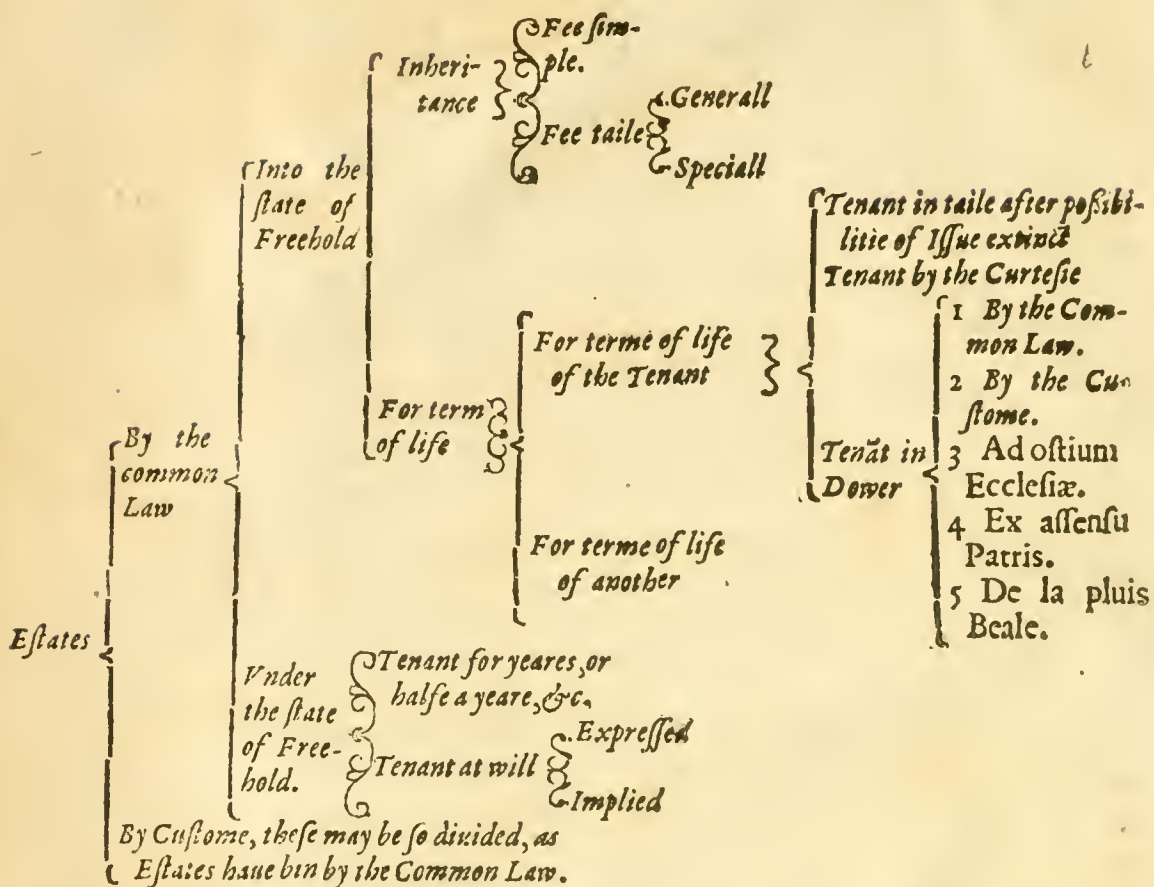 Eſtates
By the
common
Law
Into the
ſtate of
Freehold
Inheri-
tance
Fee ſim-
ple.
Fee taile
Generall
Speciall
For term
of life
For terme of life
of the Tenant
Tenant in taile after poßibi-
litie of Iſſue extinct
Tenant by the Curteſie
Tenāt in
Dower
1 By the Com-
mon Law.
2 By the Cu-
ſtome.
3 Ad oſtium
Eccleſiæ.
4 Ex aſſenſu
Patris.
5 De la pluis
Beale.
For terme of life
of another
Vnder
the ſtate
of Free-
hold.
Tenant for yeares, or
halfe a yeare, &c.
Tenant at will
Expreſſed
Implied
By Cuſtome, theſe may be ſo diuided, as
Eſtates haue bin by the Common Law.